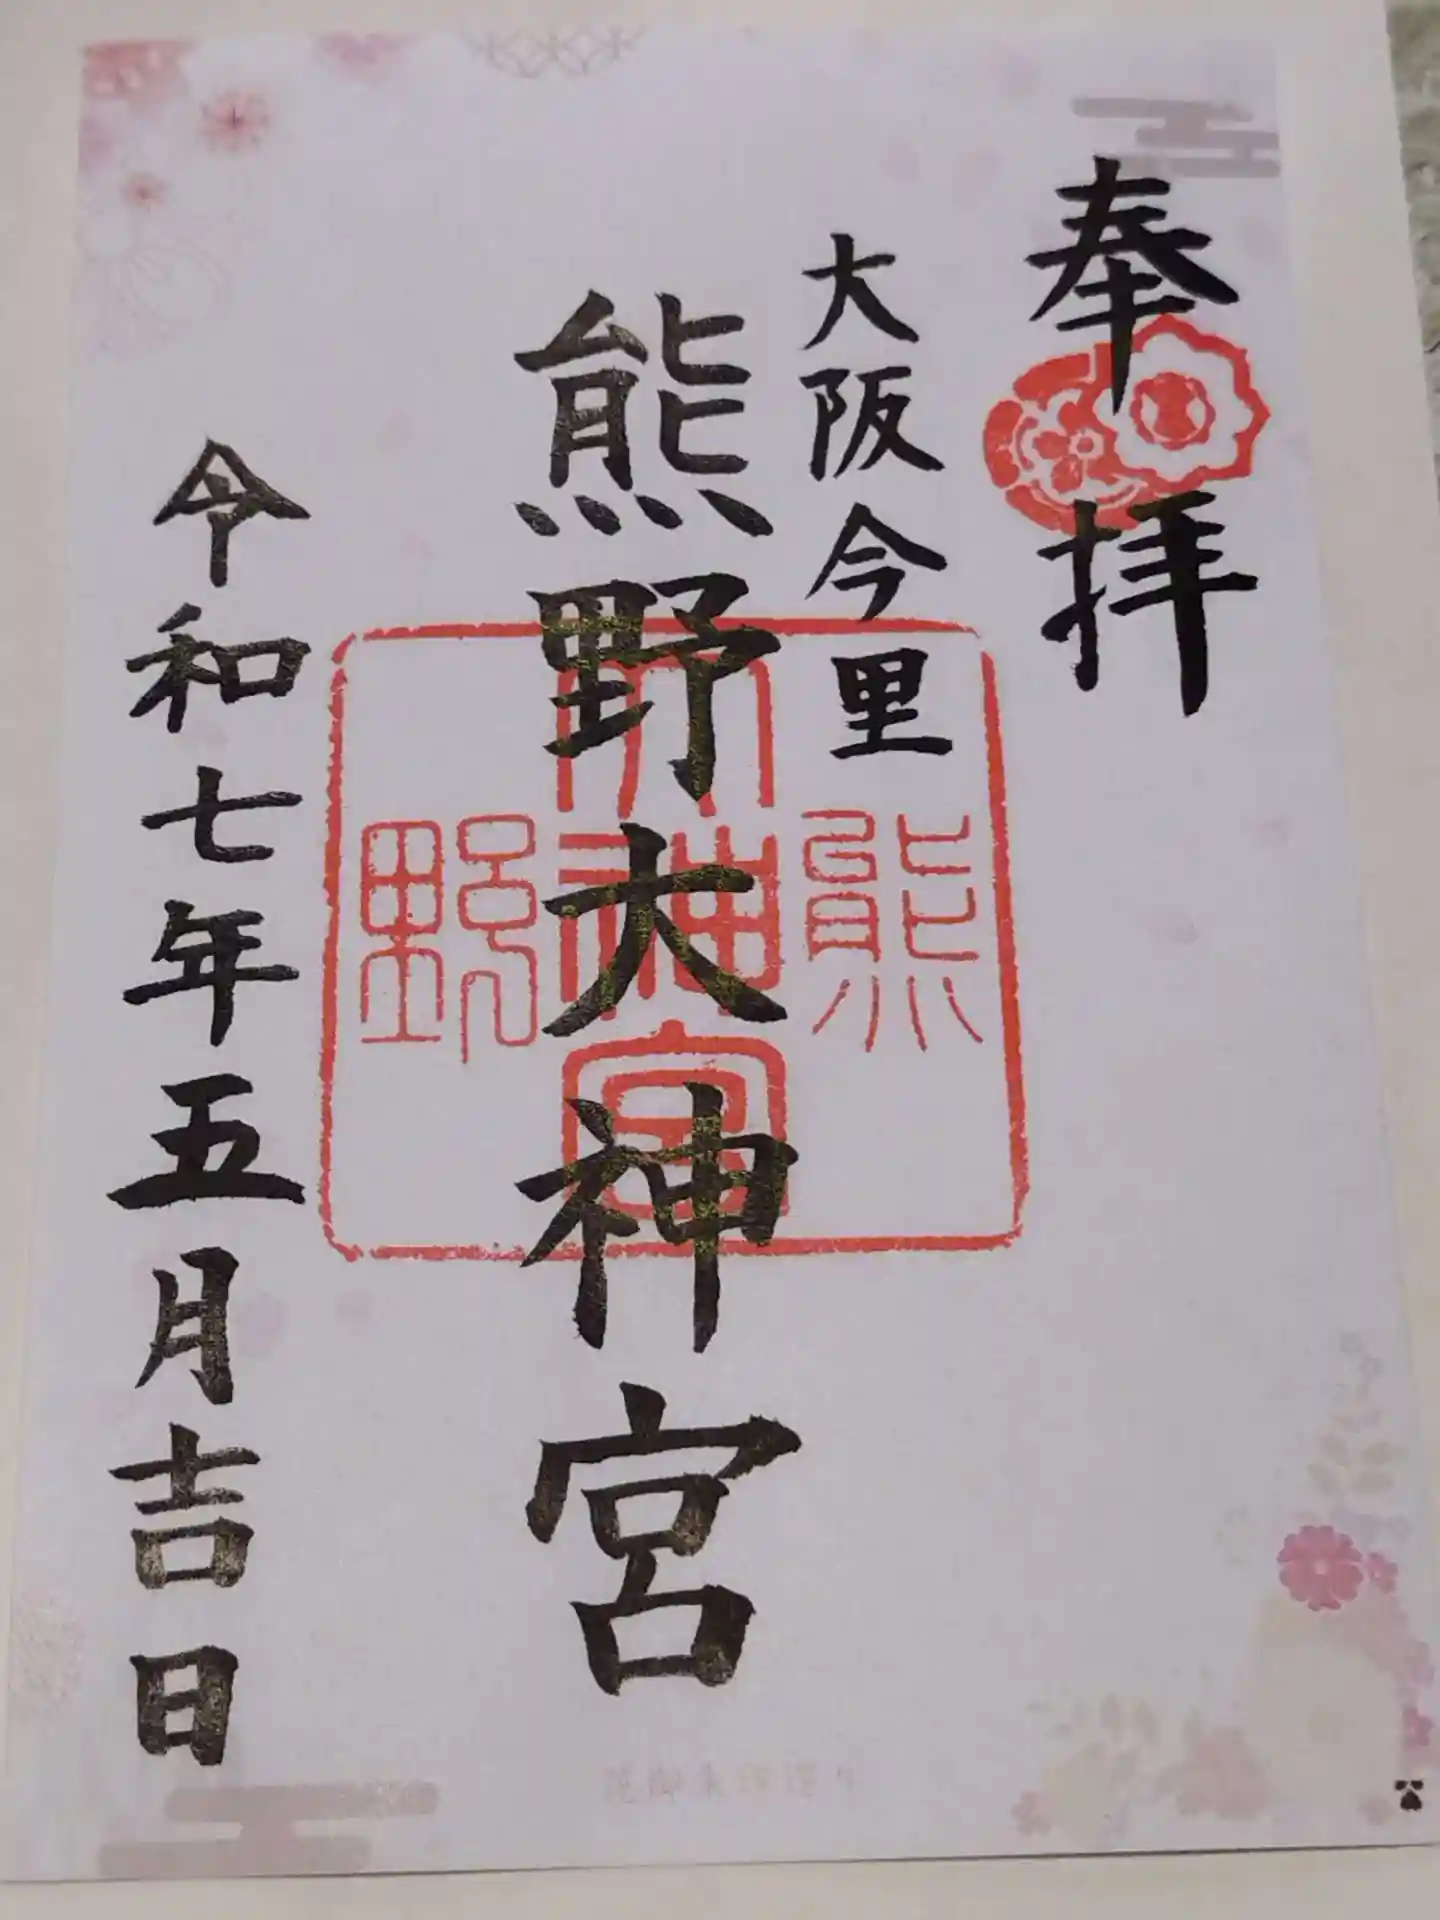 奉拝
大阪今里
熊野大神宮
令和七年五月吉日
熊野
大神宮